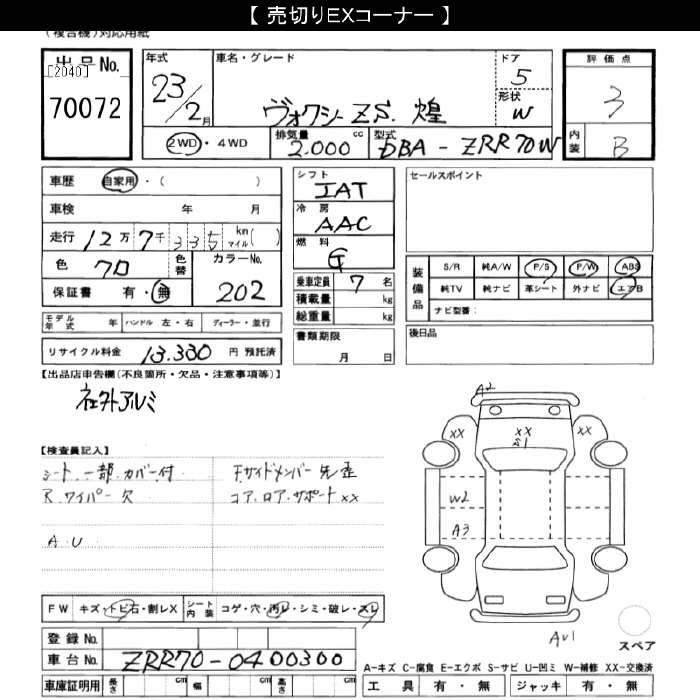 【 売切りEXコーナー 】
(複合機)対応用紙
出品No.
[2040]
70072
年式
23/2月
車名・グレード
ヴォクシー ZS. 煌
ドア
5
形状
W
評価点
3
内装
B
2WD・4WD
排気量 cc
2.000
型式
DBA - ZRR70W
車歴 自家用・( )
車検 年 月
走行 12万7千335 km マイル( )
色 クロ 色替
カラーNo.
202
保証書 有・無
シフト
IAT
冷房
AAC
燃料
G
乗車定員 7 名
積載量 kg
総重量 kg
書類期限
月 日
セールスポイント
装備品
S/R 純A/W P/S P/W ABS
純TV 純ナビ 革シート 外ナビ エアB
ナビ型番:
後日品
モデル年式 年 ハンドル 左・右 ディーラー・並行
リサイクル料金 13.330 円 預託済
【出品店申告欄(不良箇所・欠品・注意事項等)】
社外アルミ
【検査員記入】
シート一部カバー付
R.ワイパー欠
A.U
コア.ロア.サポートxx
A2
XX
XX
XX
W2
A3
AU1
スペア
FW キズ・トビ石・割レX
シート内装 コゲ・穴・汚レ・シミ・破レ・スレ
登録No.
車台No. ZRR70-0400300
車庫証明用 長さ cm 幅 cm 高さ cm
A-キズ C-腐食 E-エクボ S-サビ U-凹ミ W-補修 XX-交換済
工具 有・無 ジャッキ 有・無